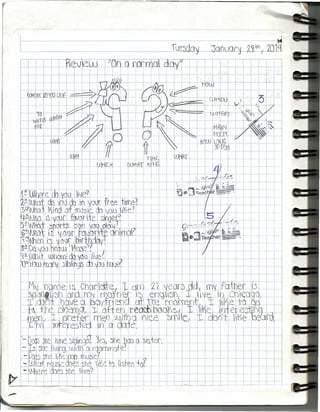 Tuesday January 28th, 2014
Review "On a normal day"
HOW
WHERE DO YOU LIVE
WHO
WHY
WHICH
WHAT TIME
WHAT
HOW LONG
3
4
5
1º Where do you live?
2º What do you do in your free time?
3º What kind of music do you like?
4º Who is your favorite singer?
5º What sports can you play?
6º What is your favorite animal?
7º When is your birthday?
8º Do you know
9º With whom do you live?
10º How many siblings do you have?
My name is Charlotte, I am 21 years old, my father is
and my mother is english, I live in Chicago,
I don't have a boyfriend at the moment, I like to go
to the cinema, I often read books, I like interesting
men, I prefer men with a nice smile, I don't like beard
I'm interested in a date.
- Does she have siblings? Yes, She has a sister.
- Is she living with a roommate?
- Does she like pop music?
- What music does she like to listen to?
- Where does she live?